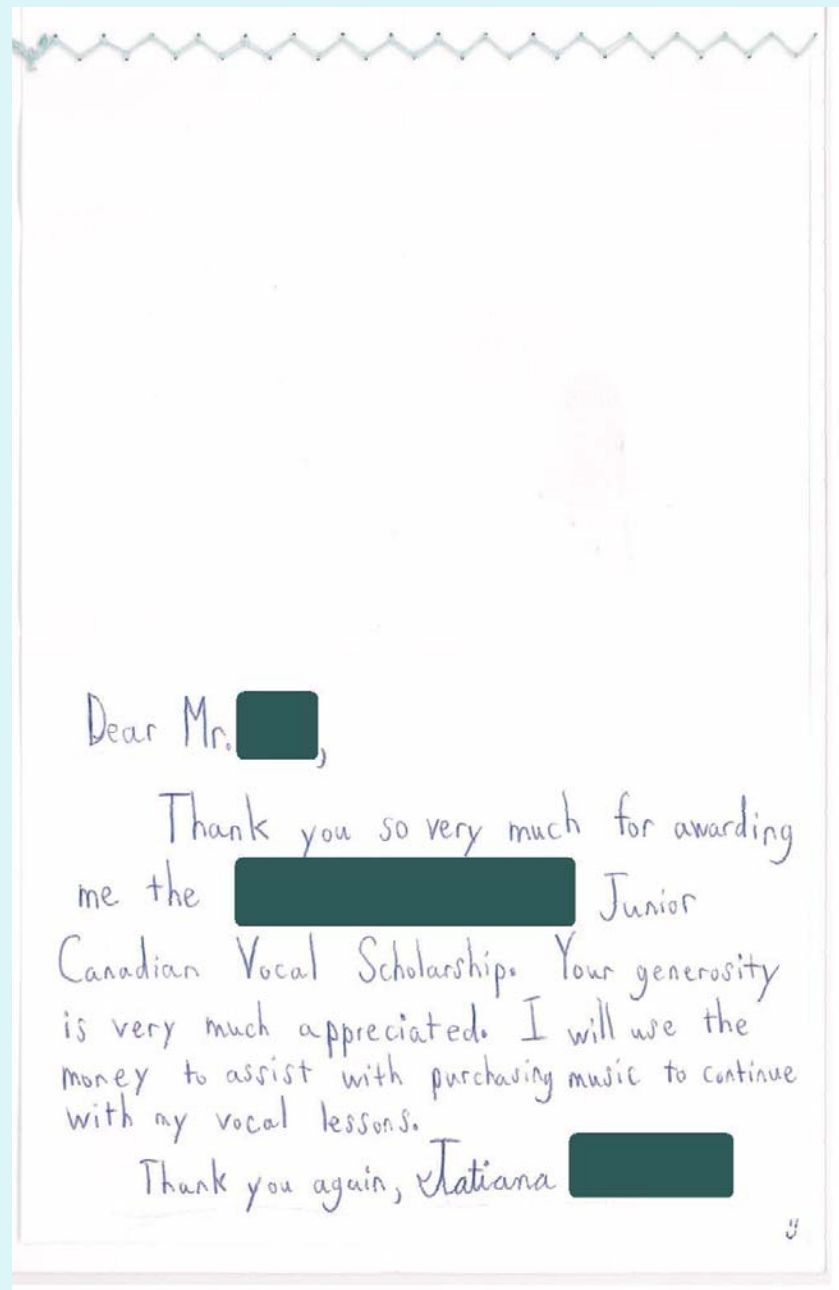 Dear Mr. ,
Thank you so very much for awarding
me the Junior
Canadian Vocal Scholarship. Your generosity
is very much appreciated. I will use the
money to assist with purchasing music to continue
with my vocal lessons.
Thank you again, Tatiana